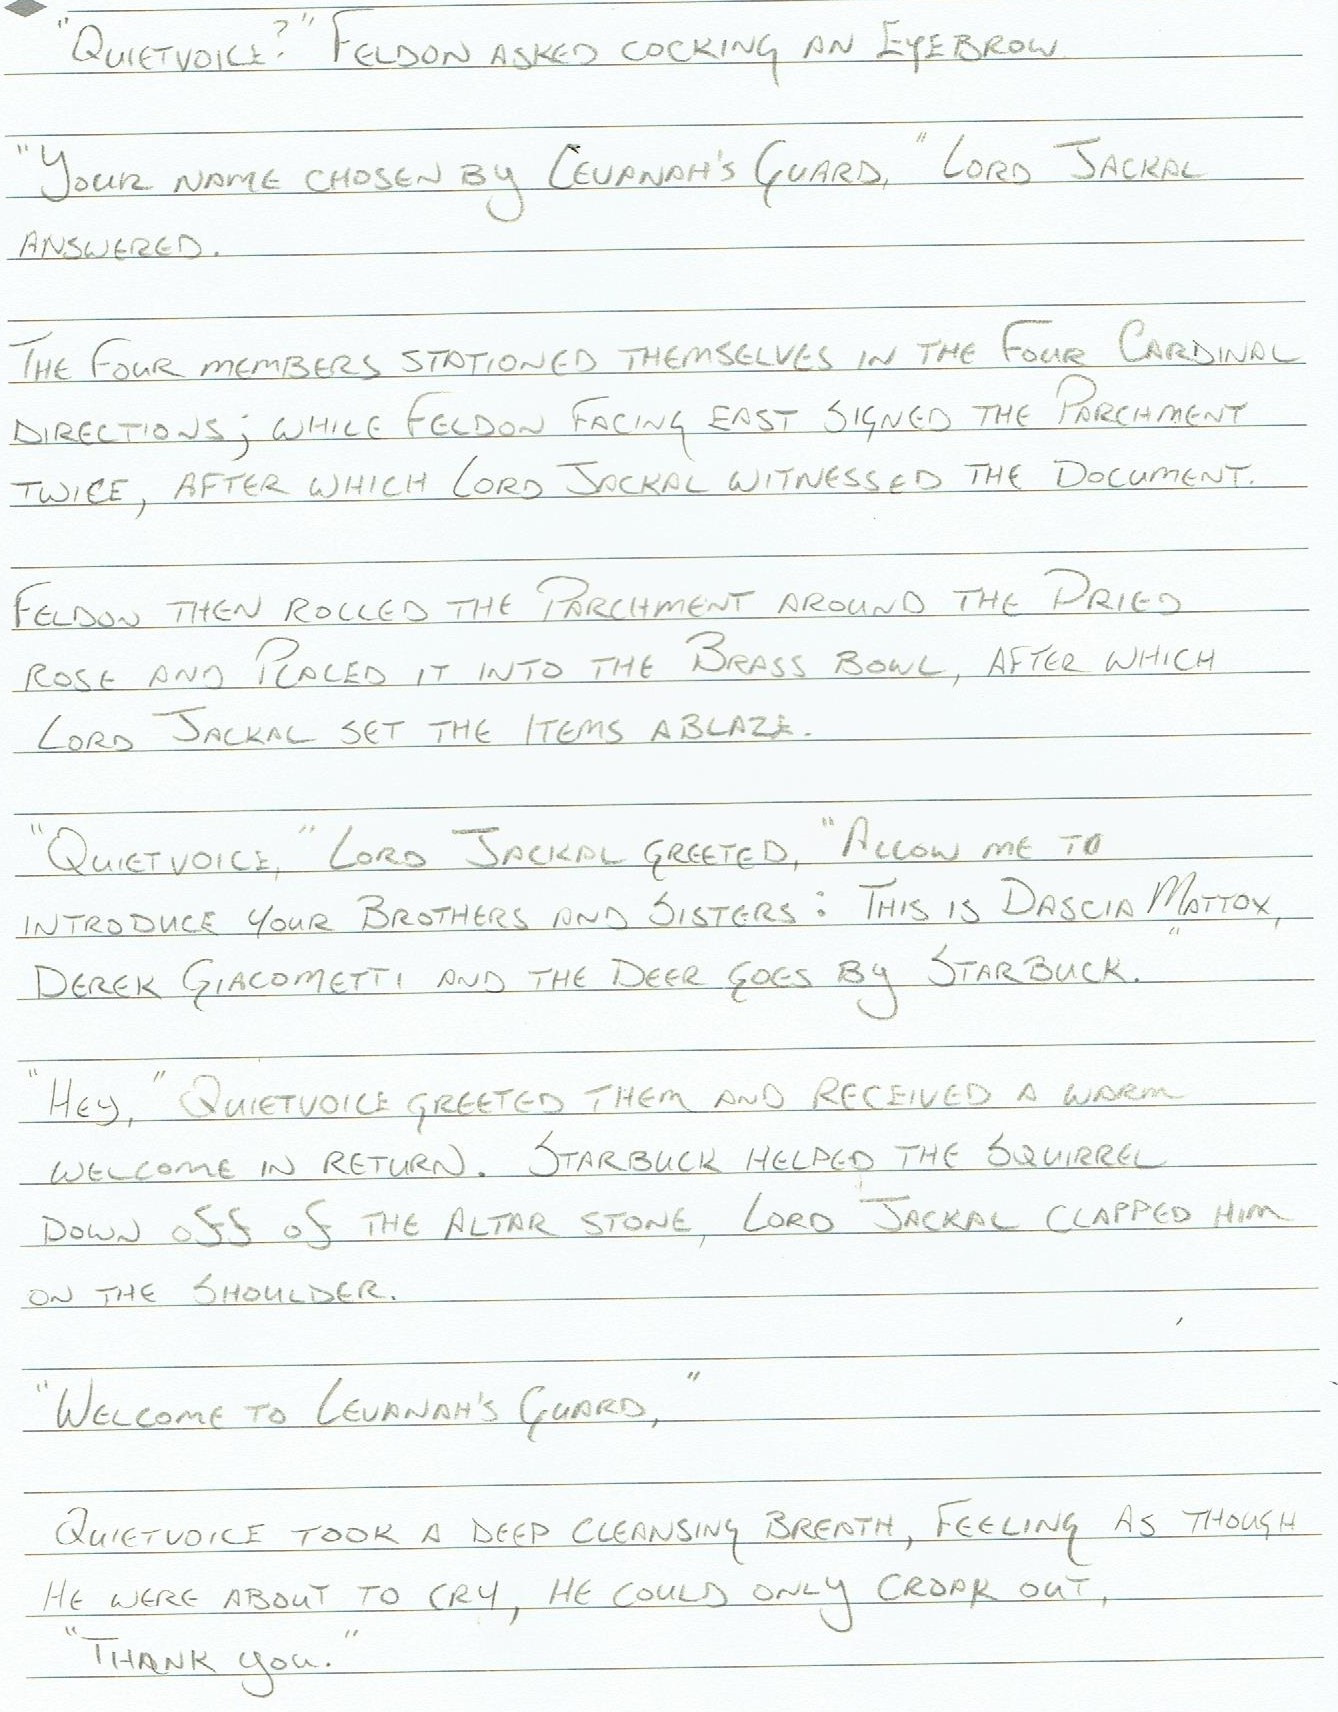 "Quietvoice?" Feldon asked cocking an Eyebrow
"Your name chosen by Levanah's Guard," Lord Jackal
answered.
The Four members stationed themselves in the Four Cardinal
directions; while Feldon Facing East signed the Parchment
twice, after which Lord Jackal witnessed the Document.
Feldon then rolled the Parchment around the Dried
rose and Placed it into the Brass bowl, after which
Lord Jackal set the Items ablaze.
"Quietvoice," Lord Jackal greeted, "Allow me to
introduce your Brothers and Sisters: This is Dascia Mattox,
Derek Giacometti and the Deer goes by StarBuck."
"Hey," Quietvoice greeted them and received a warm
welcome in return. Starbuck helped the Squirrel
down off of the Altar stone, Lord Jackal clapped him
on the Shoulder.
"Welcome to Levanah's Guard,"
Quietvoice took a deep cleansing Breath, Feeling As though
He were about to cry, he could only croak out,
"Thank you."